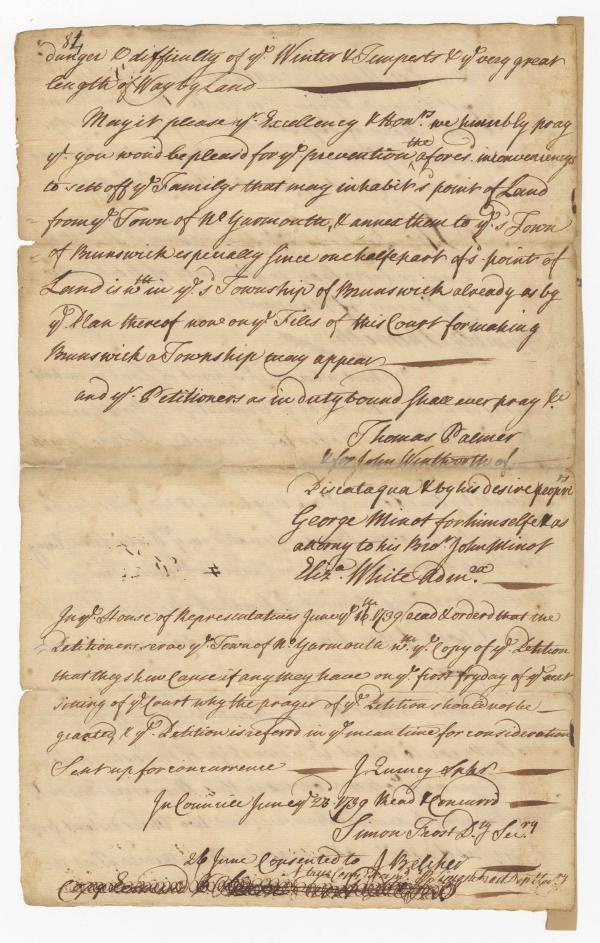 84
danger & difficulty of yͤ Winter & Tempests & yͤ very great
length of Way by Land
May it please yͬ Excellency & Honͬˢ we humbly pray
yͭ you would be pleasd for yͤ prevention the aforesͩ inconveniencys
to sett off yͤ Familys that may inhabit sͩ point of Land
from yͤ Town of Nº Yarmouth, & annex them to yͤ sͩ Town
of Brunswick especially since one halfe part of sͩ point of
Land is wᵗʰ in yͤ sͩ Township of Brunswick already as by
yͤ Plan thereof now on yͤ Files of this Court for making
Brunswick a Township may appear
and yͬ Petitioners as in duty bound shall ever pray &c
Thomas Palmer
& for John Wentworth of
Piscataqua & by his desire propͬˢ
George Minot for himselfe & as
attorny to his Broͬ John Minot
Elizª White Admˣ
In yͤ House of Representatives June yͤ 1739 Read & orderd that the
Petitioners serve yͤ Town of Nº Yarmouth wᵗʰ yͤ Copy of yͤ Petition
that they shew Cause if any they have on yͤ first fryday of yͤ next
sitting of yͤ Court why the prayer of yͤ Petition should not be
granted, & yͤ Petition is referrd in yͤ mean time for consideration
Sent up for concurrence J Quincy Spkͬ
In Councill June yͤ 1739 Read & Concurrd
Simon Frost Dᵗʸ Secʳʸ
26 June Consented to J Belcher